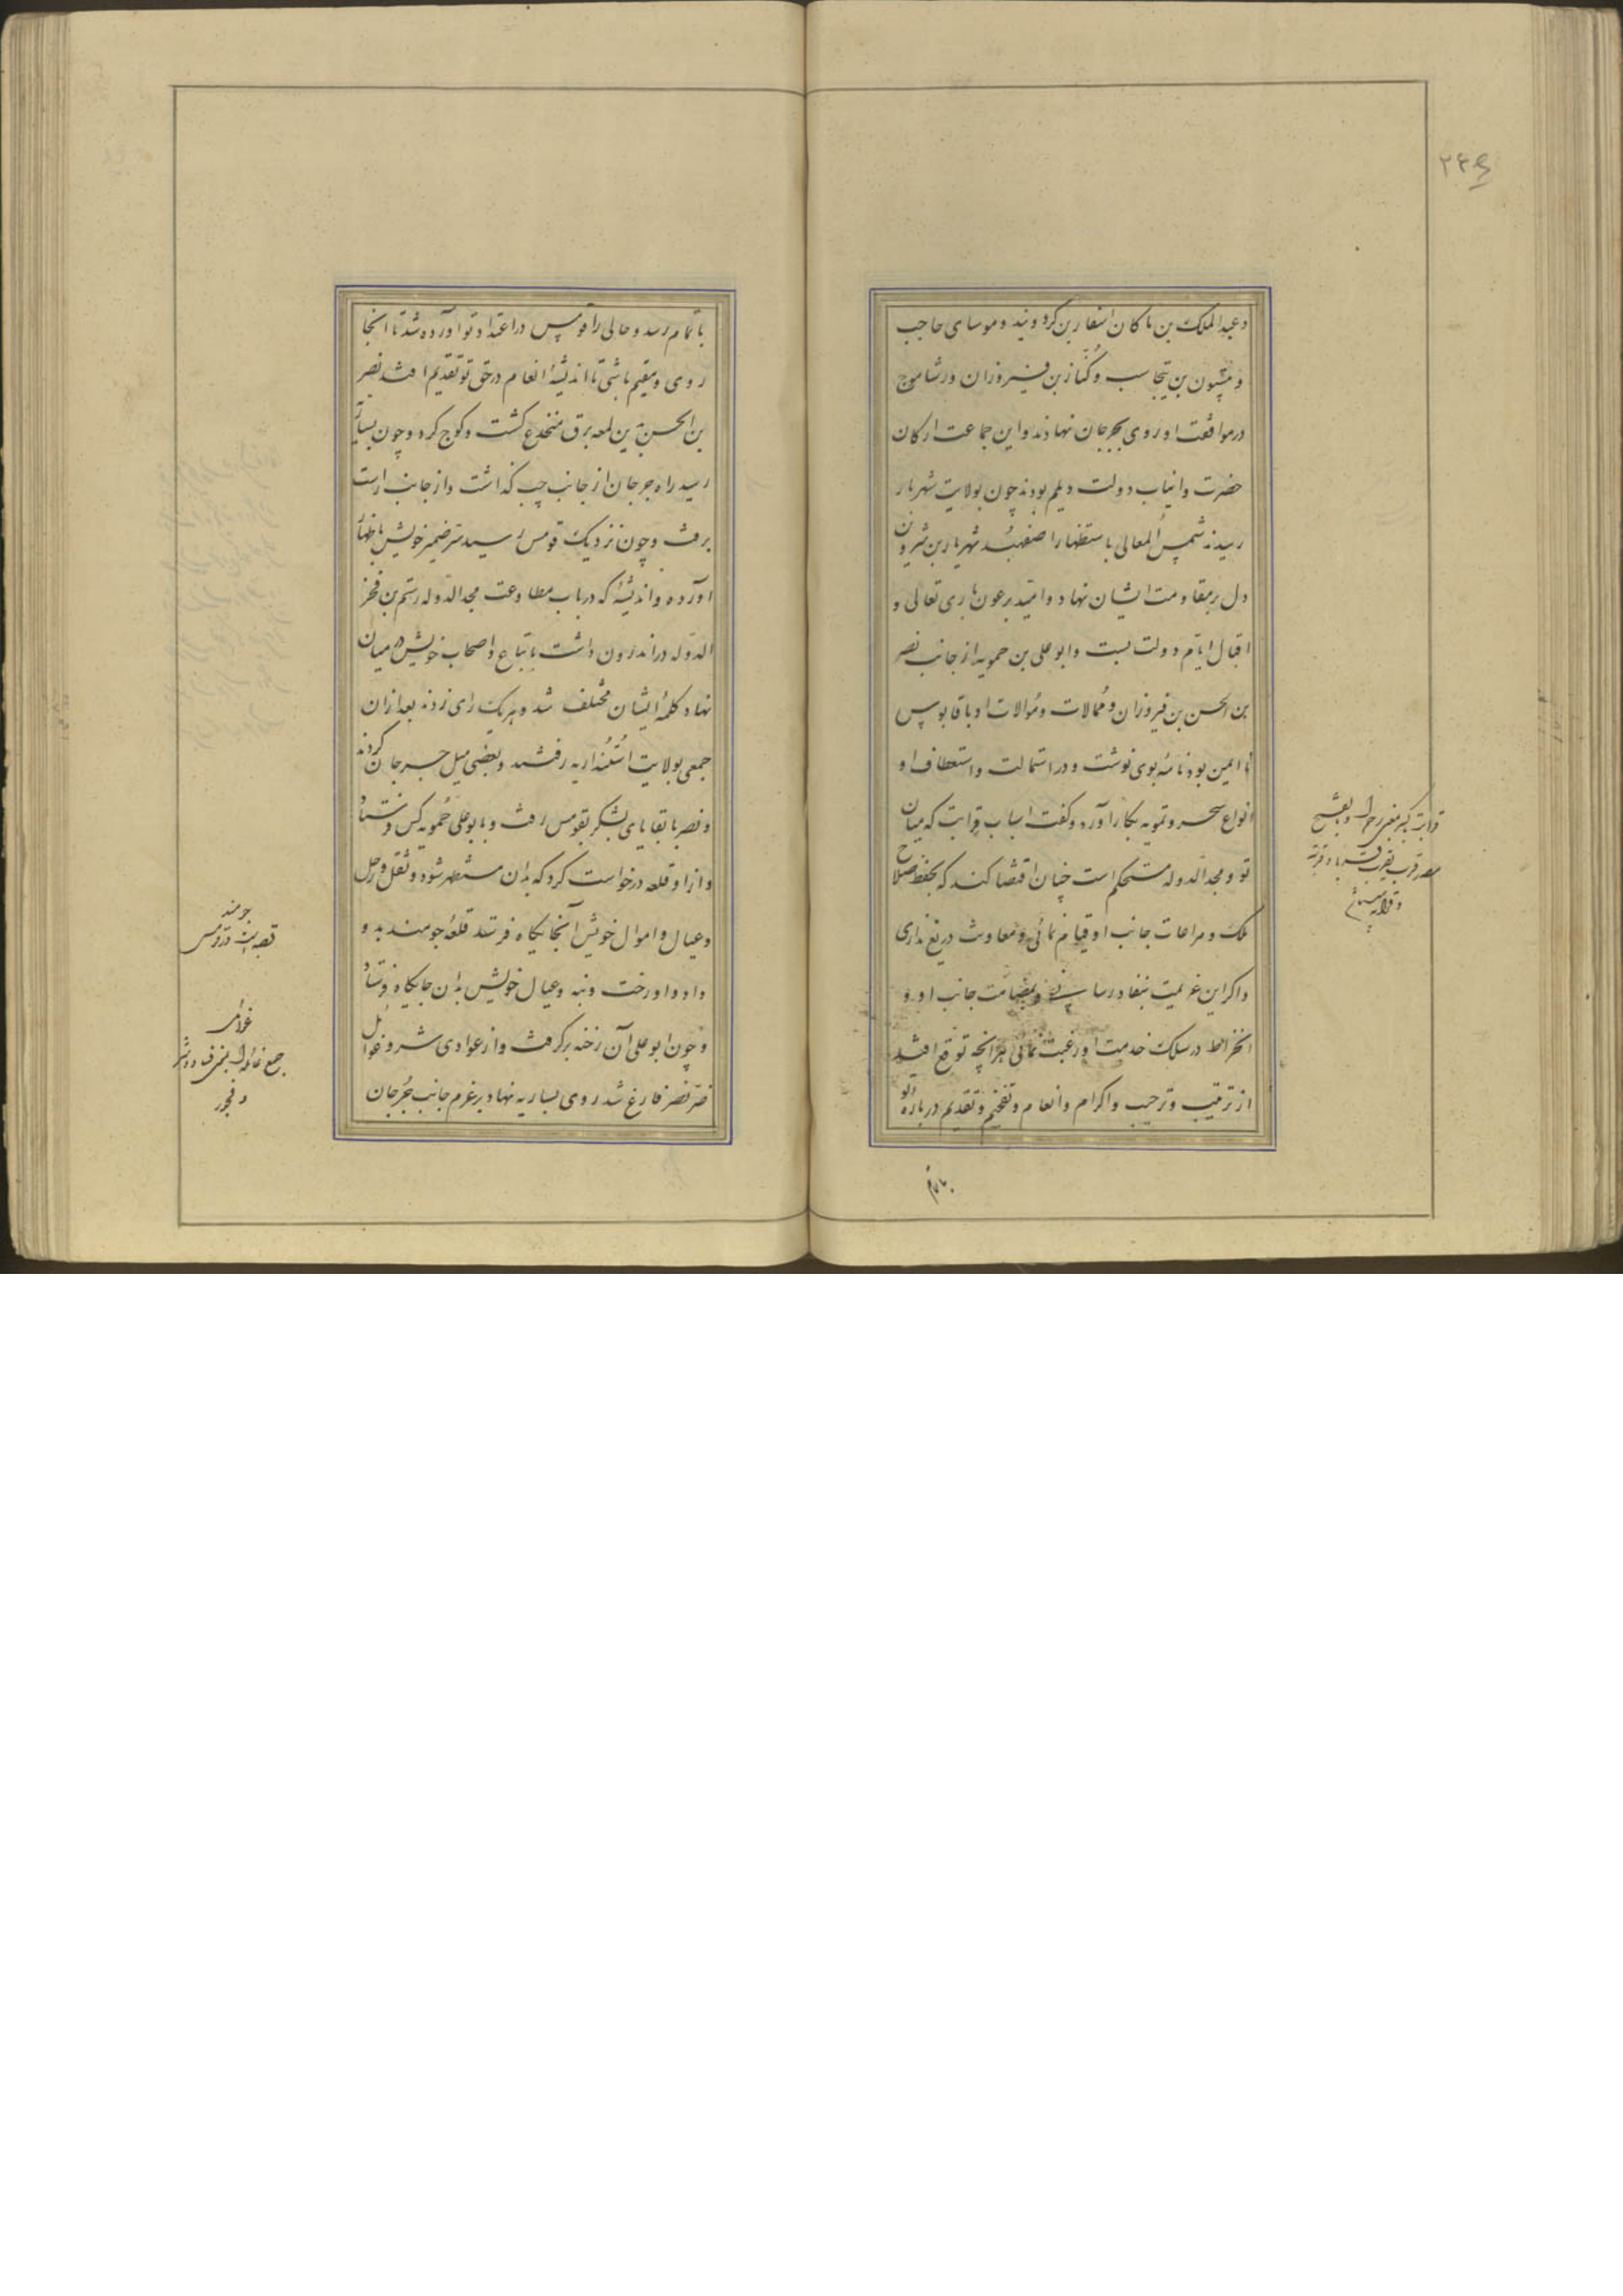 وعبد الملک بن ماکان اسفار بن کردویه وموسای حاجب
وبیستون بن تیجاسب وکنّاز بن فیروزان ورشاموج
درموافقت او روی بجرجان نهادند واین جماعت ارکان
حضرت وانیاب دولت دیلم بودند چون بولایت شهریار
رسیدند شمس المعالی باستظهار اصفهبد شهریار بن شروین
دل بر مقاومت ایشان نهاد وامید برعون باری تعالی و
اقبال ایام دولت بست وابو علی بن حمویه از جانب نصر
بن الحسن بن فیروزان وممالات وموالات او با قابوس
نا ایمن بود نامهٔ بوی نوشت ودر استمالت واستعطاف او
انواع سحر وتمویه بکار آورد وکفت اسباب قرابت که میان
تو ومجد الدوله مستحکم است چنان اقتضا کند که بحفظ صلاح
ملک ومراعات جانب او قیام نمائی ومعاونت دریغ نداری
واکر این عزیمت بنفاد رسانی وبمضامّت جانب او و
انخراط در سلک خدمت او رغبت نمائی هر آنچه توقع افتد
از ترتیب وترحیب واکرام وانعام وتفخیم وتقدیم درباره تو
باتمام
باتمام رسد وحالی را قومس در اعتداد تو آورده شد تا آنجا
روی ومقیم باشی تا اندیشهٔ انعام در حق تو تقدیم افتد نصر
بن الحسن بدین لمعه برق منخدع کشت وکوچ کرد وچون بساریه
رسید راه جرجان از جانب چپ کذاشت واز جانب راست
برفت وچون نزدیک قومس رسید سرّ ضمیر خویش باظهار
آورد واندیشهٔ که در باب مطاوعت مجد الدوله رستم بن فخر
الدوله در اندرون داشت باتباع واصحاب خویش در میان
نهاد کلمهٔ ایشان مختلف شد وهریک رای زدند بعد از ان
جمعی بولایت استنداریه رفتند وبعضی میل جرجان کردند
ونصر با بقایای لشکر بقومس رفت وبابو علی حمویه کس فرستاد
واز او قلعه درخواست کرد که بدان مستظهر شود وثقل ورحل
وعیال واموال خویش آنجایکاه فرستد قلعهٔ جومند بدو
داد واو رخت وبنه وعیال خویش بدان جایکاه فرستاد
وچون ابو علی آن رخنه برکرفت واز عوادی شر وغوائل
ضرّ نصر فارغ شد روی بساریه نهاد بر عزم جانب جرجان
جومند
قصبه‌ایست در قومس
غوائل
جمع غائله است بمعنی فساد وشر
وفجور